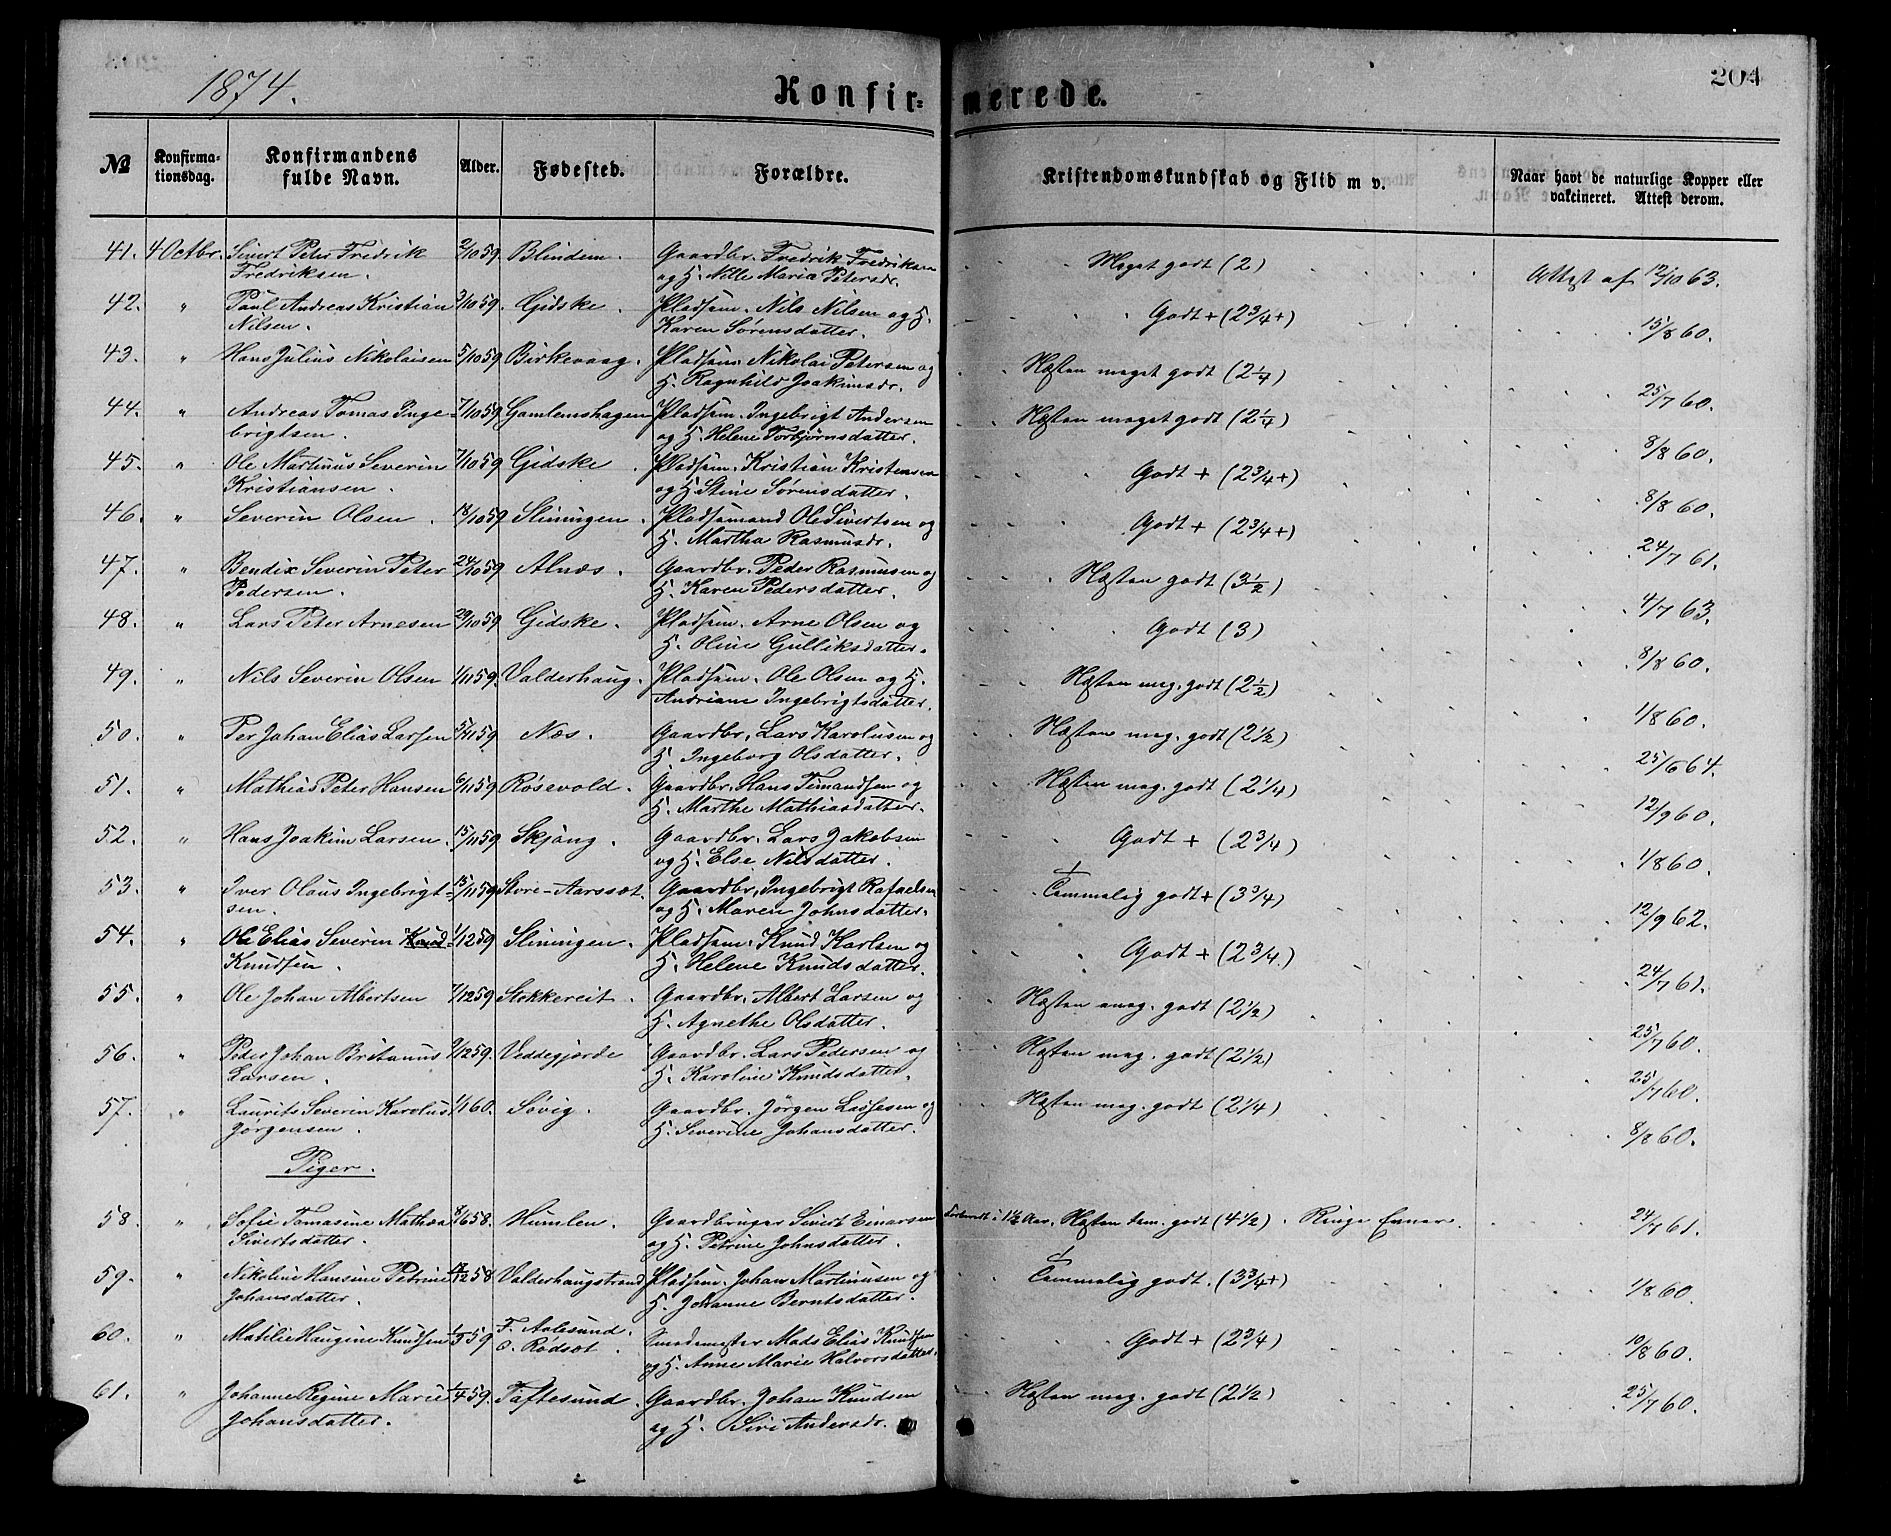 1874.
Konfir-
merede.
204
No
Konfirma-
tionsdag.
Konfirmandens
fulde Navn.
Alder.
Fødested.
Forældre.
Kristendomskundskab og Flid m v.
Naar havt de naturlige Kopper eller
vakcineret. Attest derom.
41. 4 Octbr. Sivert Peter Fredrik 2/10 59. Blindem. Gaardbr. Fredrik Fredriksen Meget godt (2) Attest af 12/10 63.
Fredriksen. og H. Nille Maria Petersdr.
42. " Paul Andreas Kristian 3/10 59. Gidske. Pladsm. Nils Nilsen og H. Godt + (2 3/4 +) 15/8 60.
Nilsen. Karen Sørensdatter.
43. " Hans Julius Nikolaisen 5/10 59 Birkevaag. Pladsm. Nikolai Petersen og Næsten meget godt (2 1/4) 25/7 60.
H. Ragnhild Joakimsdr.
44. " Andreas Tomas Inge- 7/10 59 Gamlemshagen Pladsm. Ingebrigt Andersen Næsten meget godt (2 1/4) 8/8 60.
brigtsen. og H. Helene Torbjørnsdatter.
45. " Ole Martinus Severin 7/10 59 Gidske. Pladsm. Kristian Kristensen Godt + (2 3/4 +) 8/8 60.
Kristiansen. og H. Stine Sørensdatter.
46. " Severin Olsen. 18/10 59 Sliningen. Pladsmand Ole Sivertsen og Godt + (2 3/4 +) 24/7 61.
H. Martha Rasmusdr.
47. " Bendix Severin Peter 24/10 59 Alnæs. Gaardbr. Peder Rasmussen og Næsten godt (3 1/2) 4/7 63.
Pedersen. H. Karen Pedersdatter.
48. " Lars Peter Arnesen 29/10 59 Gidske. Pladsm. Arne Olsen og Godt (3) 8/8 60.
H. Oline Gulliksdatter.
49. " Nils Severin Olsen 1/11 59. Valderhaug. Pladsm. Ole Olsen og H. Næsten meg. godt (2 1/2) 1/8 60.
Andriane Ingebrigtsdatter.
50. " Per Johan Elias Larsen 5/11 59 Næs. Gaardbr. Lars Karolusen og Næsten meg. godt (2 1/2) 25/6 64.
H. Ingeborg Olsdatter.
51. " Mathias Peter Hansen 6/11 59 Røsevold. Gaardbr. Hans Timandsen og Næsten meg. godt (2 1/4) 12/9 60.
H. Marthe Mathiasdatter.
52. " Hans Joakim Larsen. 15/11 59 Skjong. Gaardbr. Lars Jakobsen Godt + (2 3/4) 1/8 60.
og H. Else Nilsdatter.
53. " Iver Olaus Ingebrigt- 15/11 59 Store-Aarssæt. Gaardbr. Ingebrigt Rafaelsen Temmelig godt + (3 3/4) 12/9 62.
sen. og H. Maren Johnsdatter.
54. " Ole Elias Severin Knud- 1/12 59 Sliningen. Pladsm. Knud Karlsen og Godt + (2 3/4.) 24/7 61.
Knudsen. H. Helene Knudsdatter.
55. " Ole Johan Albertsen 7/12 59 Stokkereit. Gaardbr. Albert Larsen og Næsten meg. godt (2 1/2) 25/7 60.
H. Agnethe Olsdatter.
56. " Peder Johan Britanus 9/12 59. Veddegjerde Gaardbr. Lars Pedersen og Næsten meg. godt (2 1/2) 25/7 60.
Larsen. H. Karoline Knudsdatter.
57. " Laurits Severin Karolus 1/1 60. Søvig. Gaardbr. Jørgen Lassesen og Næsten meg. godt (2 1/4) 8/8 60.
Jørgensen. H. Severine Johansdatter.
Piger.
58. " Sofie Tomasine Mathea 8/6 58. Humlen. Gaardbruger Sivert Einarsen i 1 1/2 Aar. Næsten tem. godt (4 1/2). Ringe Evner. 24/7 61.
Sivertsdatter. og H. Petrine Johnsdatter.
59. " Nikoline Hansine Petrine 17/12 58. Valderhaugstrand Pladsm. Johan Martinusen og Temmelig godt. (3 3/4 +) 1/8 60.
Johansdatter. H. Johanne Berntsdatter.
60. " Matilie Haugine Knudsen 1/3 59 F. Aalesund. Smedemester Mads Elias Knudsen Godt + (2 3/4) 10/8 60.
O. Rødsæt. og H. Anne Marie Halvorsdatter.
61. " Johanne Regine Marie 1/4 59. Tøftesund. Gaardbr. Johan Knudsen Næsten meg. godt (2 1/2) 25/7 60.
Johansdatter. og H. Siri Andersdr.